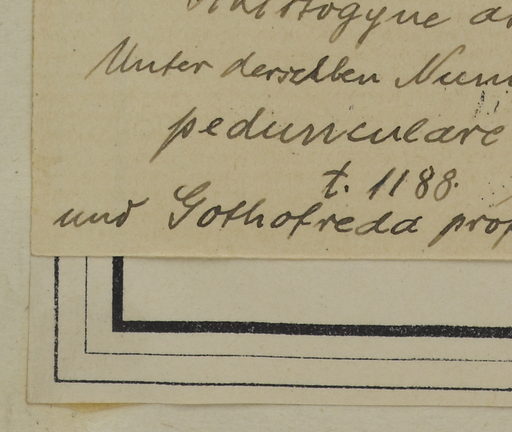 Unter derselben Num
pedunculare
t. 1188.
und Gothofreda prop